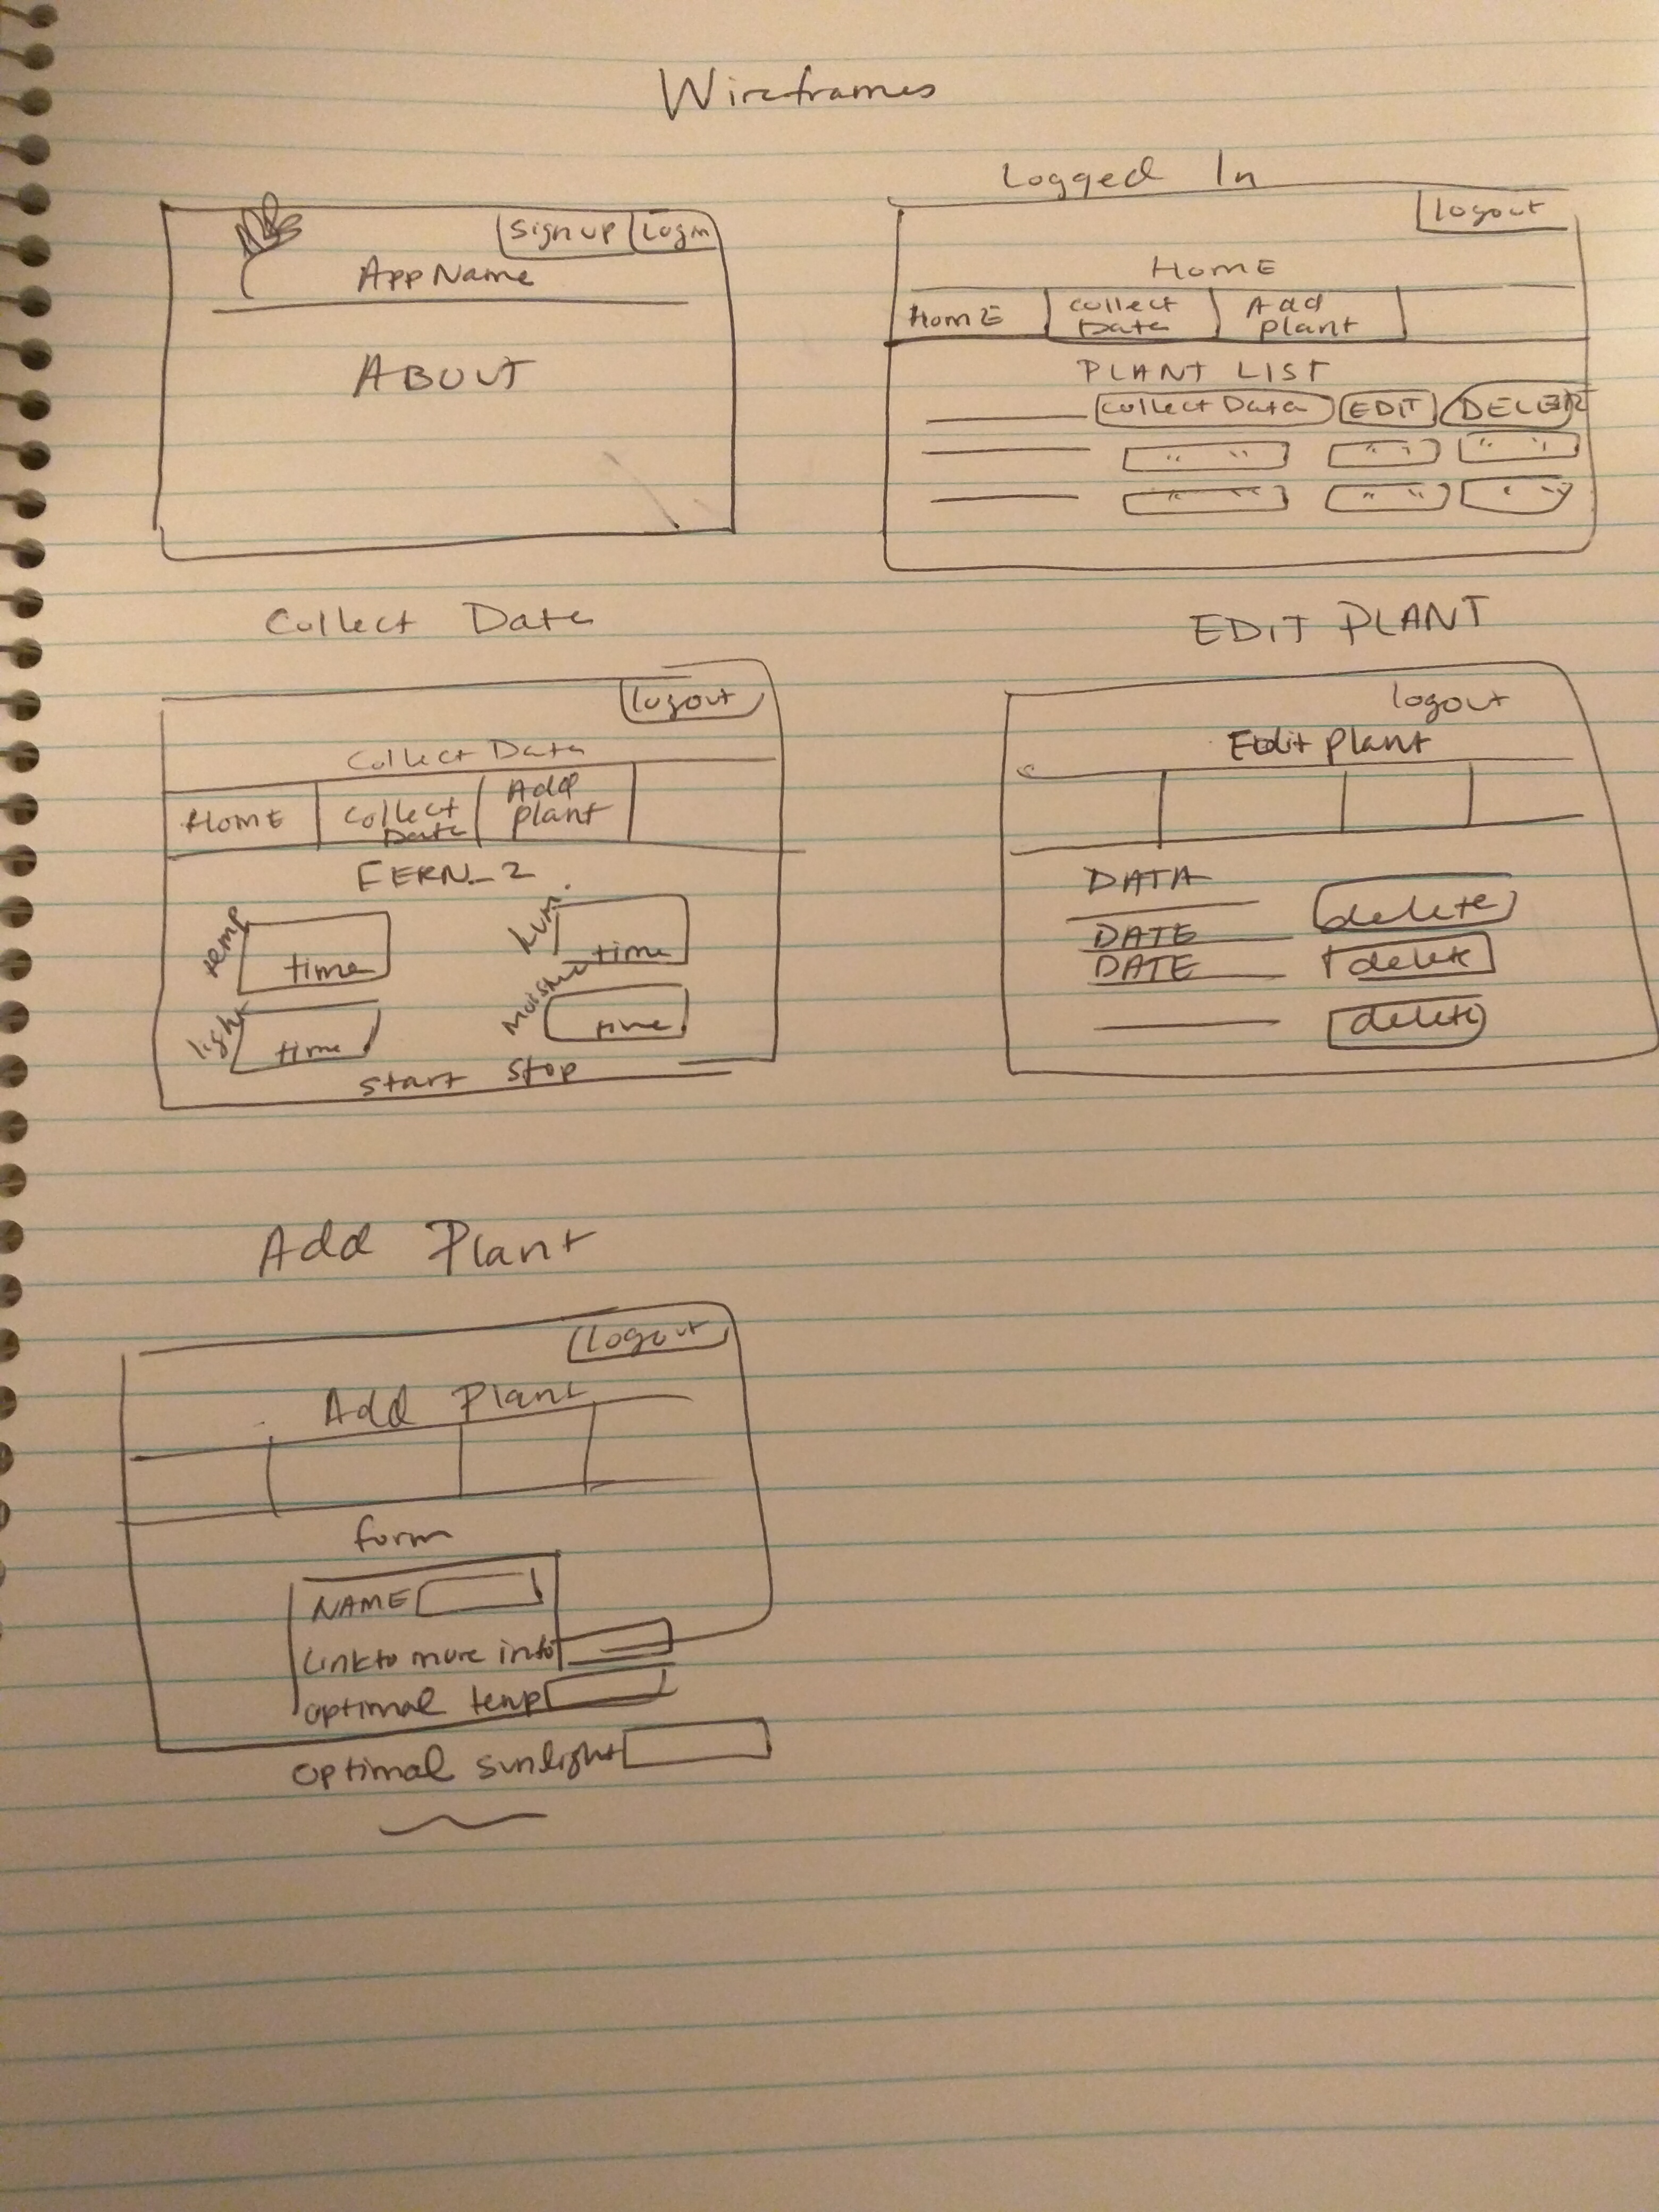 Wireframes
Signup Login
App Name
ABOUT
Logged In
logout
HOME
HOME Collect Data Add plant
PLANT LIST
Collect Data EDIT DELETE
" " " " " "
" " " " " "
Collect Data
logout
Collect Data
HOME Collect Data Add plant
FERN_2
temp time hum. time
light time moisture time
start stop
EDIT PLANT
logout
Edit plant
DATA
delete
DATE
DATE delete
delete
Add Plant
Logout
Add Plant
form
NAME
Link to more info
optimal temp
optimal sunlight